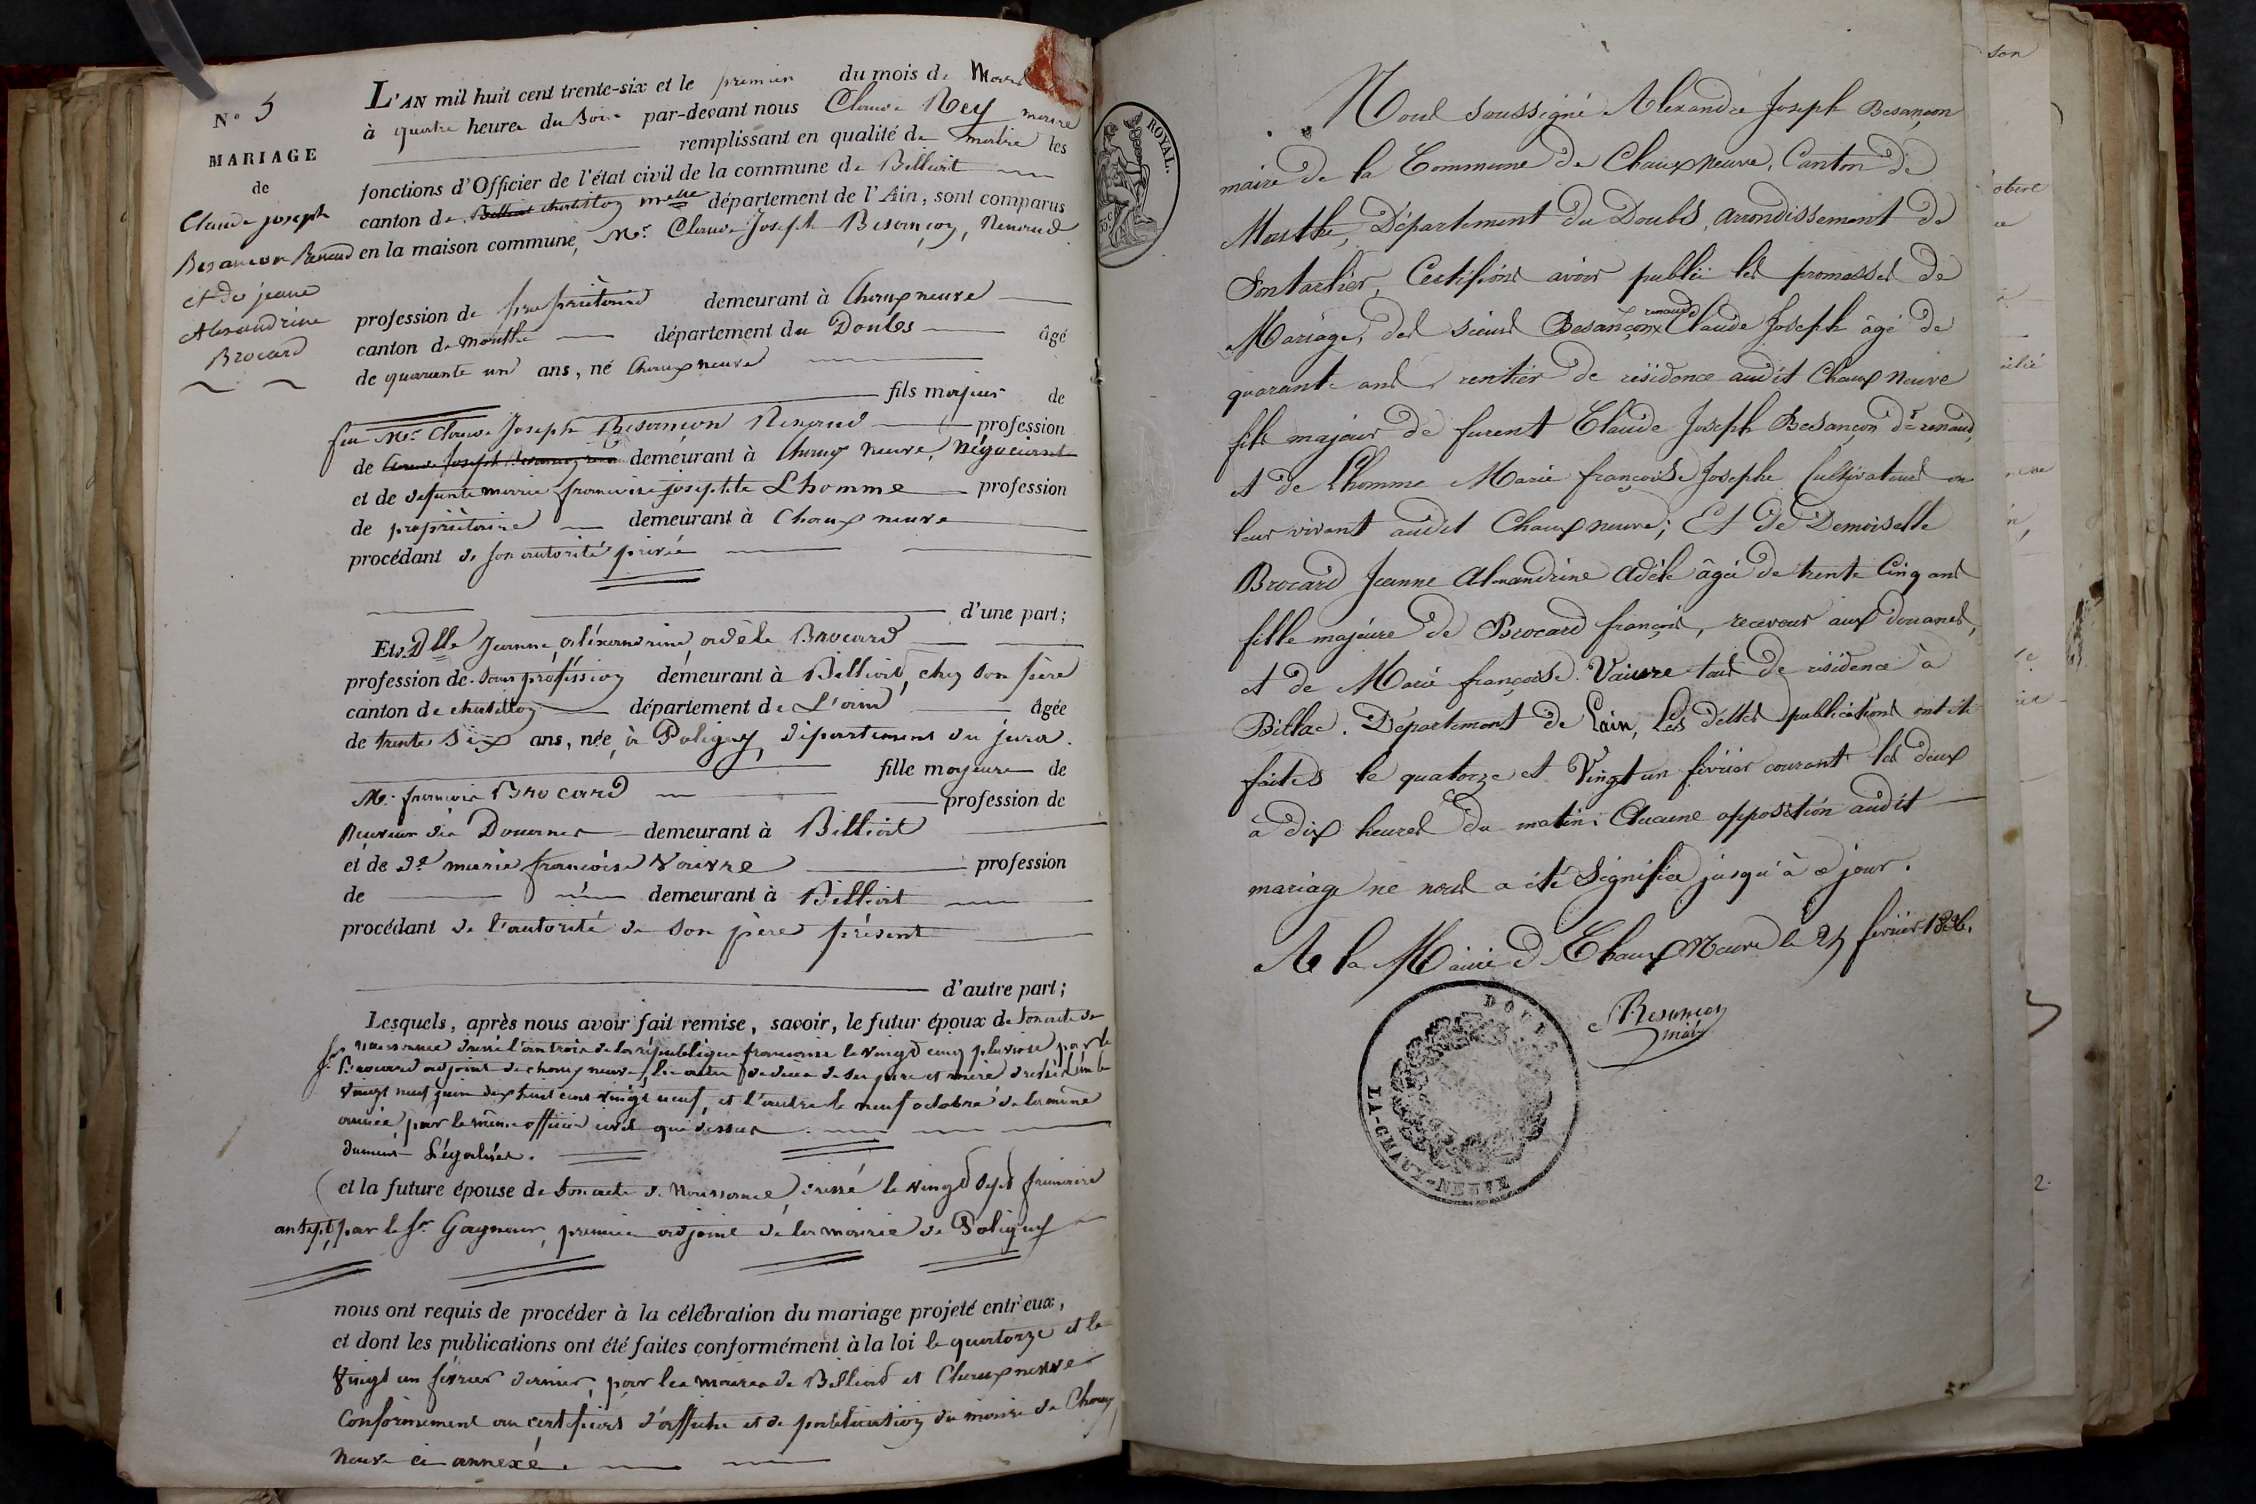 N° 5
MARIAGE
de
Claude joseph
Besancon Renaud
et de jeanne
Alexandrine
Brocard
L'AN mil huit cent trente-six et le premier du mois de Mars
à quatre heures du Soir par-devant nous Claude Rey maire
remplissant en qualité de maire les
fonctions d'Officier de l'état civil de la commune de Billiat
canton de Billiat chatillon m^elle département de l'Ain, sont comparus
en la maison commune, Mr Claude Joseph Besançon, Renaud
profession de propriétaire demeurant à Chaux neuve
canton de mouthe département du Doubs âgé
de quarante un ans, né Chaux neuve
fils majeur de
feu Mr Claude Joseph Besançon Renaud profession
de demeurant à Chaux neuve, Négociant
et de defunte marie françoise josephte Lhomme profession
de propriétaire demeurant à Chaux neuve
procédant de son autorité privée
d'une part;
Et Dlle Jeanne alexandrine adèle Brocard
profession de Sans profession demeurant à Billiat, chez son père
canton de chatillon département de L'ain âgée
de trente Six ans, née à Poligny, département du jura.
fille majeure de
Mr françois Brocard profession de
Receveur des Douanes demeurant à Billiat
et de De marie françoise Vaivre profession
de demeurant à Billiat
procédant de l'autorité de son père présent
d'autre part;
Lesquels, après nous avoir fait remise, savoir, le futur époux de Son acte de
naissance dressé l'an trois de la république française le vingt cinq pluviose par le
Sr Brocard adjoint de chaux neuve, les actes de deces de ses père et mère dressés l'un le
vingt neuf juin dix huit cent vingt neuf, et l'autre le neuf octobre de la même
année, par le même officier civil que dessus
dument Légalisés.
et la future épouse de Son acte de Naissance, dressé le vingt sept frimaire
an sept, par le Sr Gagneur, premier adjoint de la mairie de Poligny
nous ont requis de procéder à la célébration du mariage projeté entr'eux,
et dont les publications ont été faites conformément à la loi le quatorze et le
vingt un février dernier, par les maires de Billiat et Chaux neuve
Conformement au certificat d'affiche et de publication du maire de Chaux
neuve ci annexé.
ROYAL.
Nous soussigné Alexandre Joseph Besançon
maire de la Commune de Chaux neuve, Canton de
Mouthe, Département du Doubs, arrondissement de
Pontarlier, Certifions avoir publié les promesses de
Mariage, des sieurs Besançon renaud Claude Joseph âgé de
quarante ans rentier de résidence audit Chaux Neuve
fils majeur de furent Claude Joseph Besançon dt renaud,
et de Lhomme Marie françoise Josephe Cultivateurs en
leur vivant audit Chaux neuve; Et de Demoiselle
Brocard Jeanne Alexandrine Adèle âgée de trente Cinq ans
fille majeure de Brocard françois, receveur aux douanes,
et de Marie françoise Vaivre tous de résidence à
Billac. Département de Lain, Les dittes publications ont été
faites le quatorze et Vingt un février courant les deux
à dix heures du matin; Aucune opposition audit
mariage ne nous a été Signifiée jusqu'à ce jour.
A la Mairie de Chaux Neuve le février 1836.
Besançon
maire
DOUBS
LA-CHAUX-NEUVE
son
2.